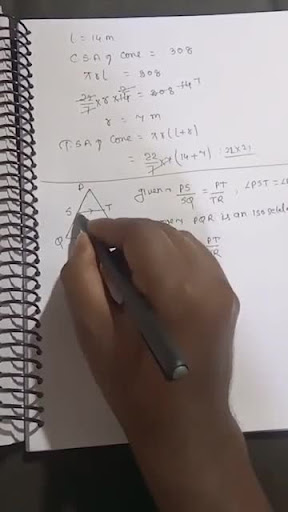 l = 14 m
C.S.A of cone = 308
πrl = 308
22/7 × r × 14 = 308
r = 7 m
T.S.A of cone = πr(l+r)
= 22/7 × 7 (14+7) : 22×21
P
given PS/SQ = PT/TR , ∠PST = ∠
S T
PQR is an isoscele
Q
PT/TR